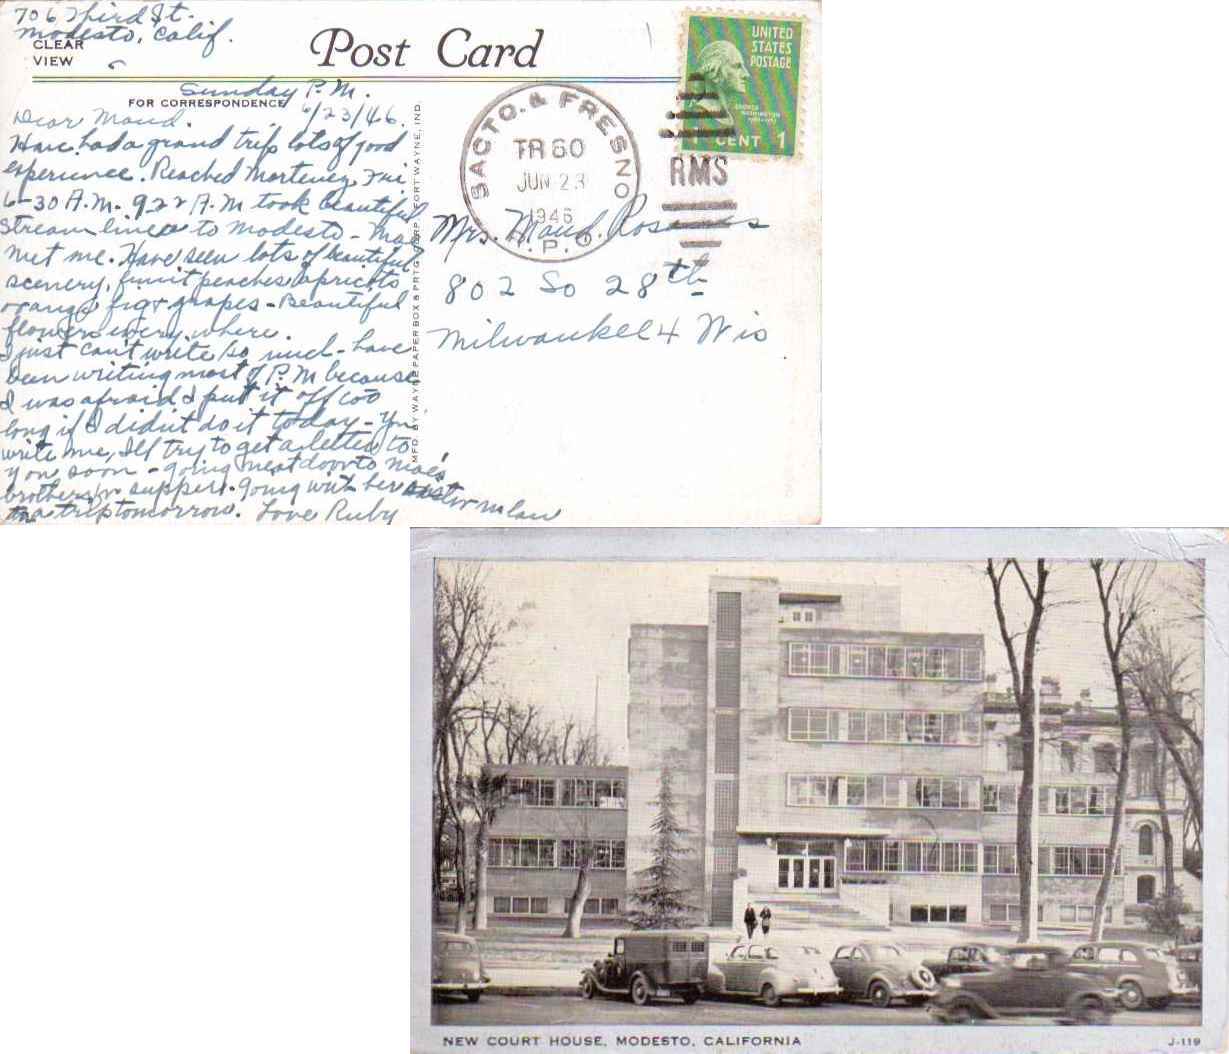 706 Third St.
Modesto, Calif.
CLEAR
VIEW
Post Card
FOR CORRESPONDENCE
Sunday P.M.
6/23/46.
Dear Maud.
Have had a grand trip lots of good
experience. Reached Fri
6-30 A.M. 922 A.M took beautiful
stream liner to Modesto - Mae
met me. Have seen lots of beautiful
scenery, fruit peaches apricots
orange figs grapes - Beautiful
flowers every where.
I just can't write so much - have
been writing most of P.M because
I was afraid I put it off too
long if I didn't do it today - You
write me, I'll try to get a letter to
you soon - going next door to Mae's
brothers for supper. Going with her sister in law
on a trip tomorrow. Love Ruby
MFD. BY WAYNE PAPER BOX & PRTG. CORP., FORT WAYNE, IND.
SACTO. & FRESNO
TR 60
JUN 23
1946
R.P.O.
RMS
UNITED
STATES
POSTAGE
GEORGE
WASHINGTON
1 CENT 1
Mrs. Maud
802 So 28th
Milwaukee 4 Wis
NEW COURT HOUSE, MODESTO, CALIFORNIA
J-119